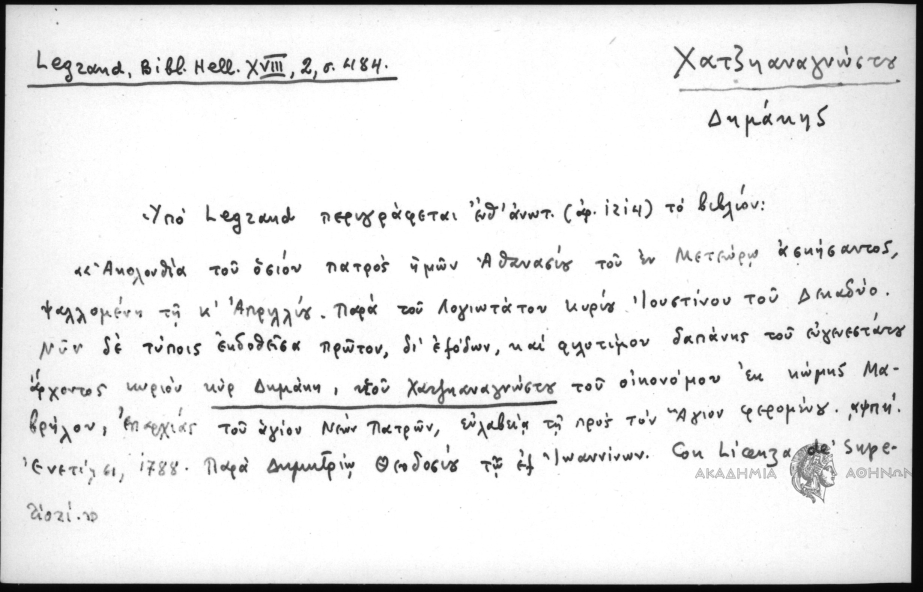 Legrand, Bibl. Hell. XVIII, 2, σ. 484.
Χατζηαναγνώστου
Δημάκης
Ὑπὸ Legrand περιγράφεται ἐνθ' ἀνωτ. (ἀρ. 1214) τὸ βιβλίον:
«Ἀκολουθία τοῦ ὁσίου πατρὸς ἡμῶν Ἀθανασίου τοῦ ἐν Μετεώρῳ ἀσκήσαντος,
ψαλλομένη τῇ κ' Ἀπριλλίου. Παρὰ τοῦ λογιωτάτου κυρίου Ἰουστίνου τοῦ Δεκαδύο.
Νῦν δὲ τύποις ἐκδοθεῖσα πρῶτον, δι' ἐξόδων, καὶ φιλοτίμου δαπάνης τοῦ εὐγενεστάτου
ἄρχοντος κυρίου κὺρ Δημάκη, υἱοῦ Χατζηαναγνώστου τοῦ οἰκονόμου ἐκ κώμης Μα-
βρήλου, ἐπαρχίας τοῦ ἁγίου Νέων Πατρῶν, εὐλαβείᾳ τῇ πρὸς τὸν Ἅγιον φερομένου. ͵αψπη'.
Ἐνετίῃσι, 1788. Παρὰ Δημητρίῳ Θεοδοσίου τῷ ἐξ Ἰωαννίνων. Con Licenza de' Supe-
riori.»
ΑΚΑΔΗΜΙΑ ΑΘΗΝΩΝ